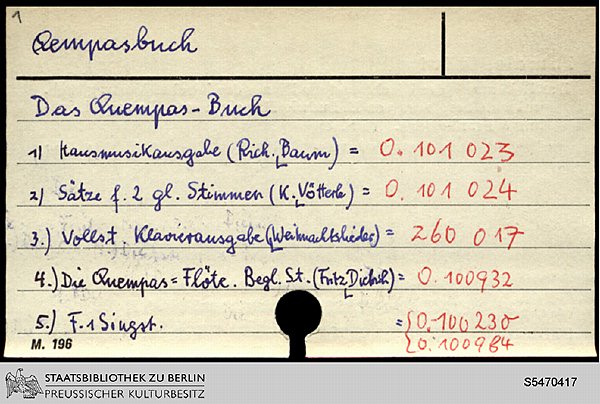 1
Qempasbuch
Das Quempas-Buch
1) Hausmusikausgabe (Rich. Baum) = O. 101 023
2) Sätze f. 2 gl. Stimmen (K. Vötterle) = O. 101 024
3.) Vollst. Klavierausgabe (Weihnachtslieder) = 260 017
4.) Die Quempas=Flöte. Begl. St. (Fritz Dietrich) = O. 100932
5.) F. 1 Singst. = { O. 100230
{ O. 100984
M. 196
STAATSBIBLIOTHEK ZU BERLIN
PREUSSISCHER KULTURBESITZ
S5470417